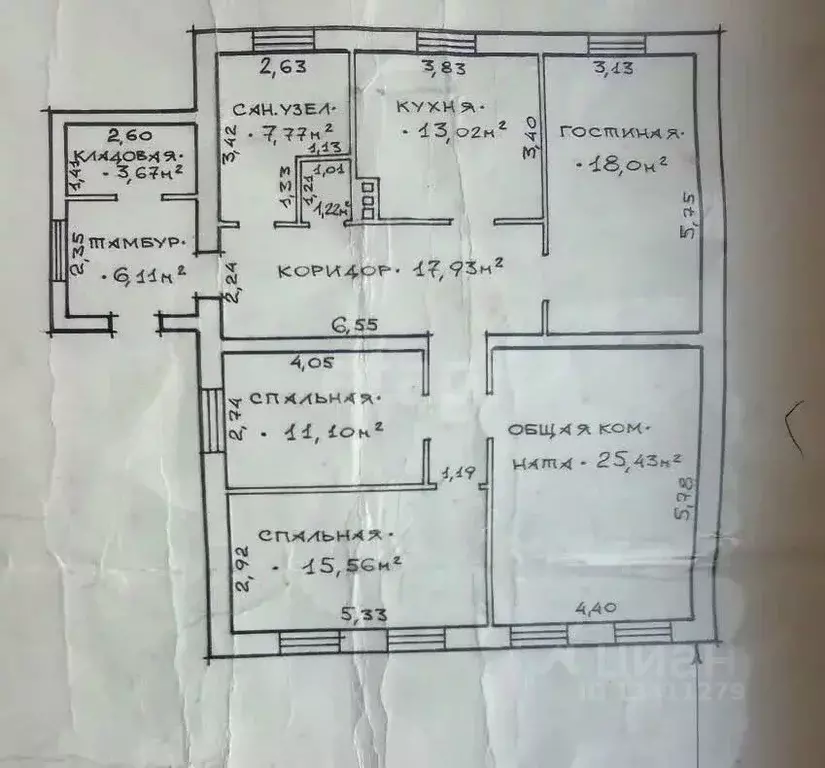 2,63
3,83
3,13
САН.УЗЕЛ·
·7,77м²
3,42
1,13
1,33
1,21
1,01
1,22м²
КУХНЯ·
·13,02м²
3,40
ГОСТИНАЯ·
·18,0м²
5,75
2,60
КЛАДОВАЯ·
·3,67м²
1,41
ТАМБУР·
·6,11м²
2,35
2,24
КОРИДОР·17,93м²
6,55
4,05
СПАЛЬНАЯ·
·11,10м²
2,74
1,19
ОБЩАЯ КОМ-
НАТА·25,43м²
5,78
4,40
СПАЛЬНАЯ·
·15,56м²
2,92
5,33
ЦИАН